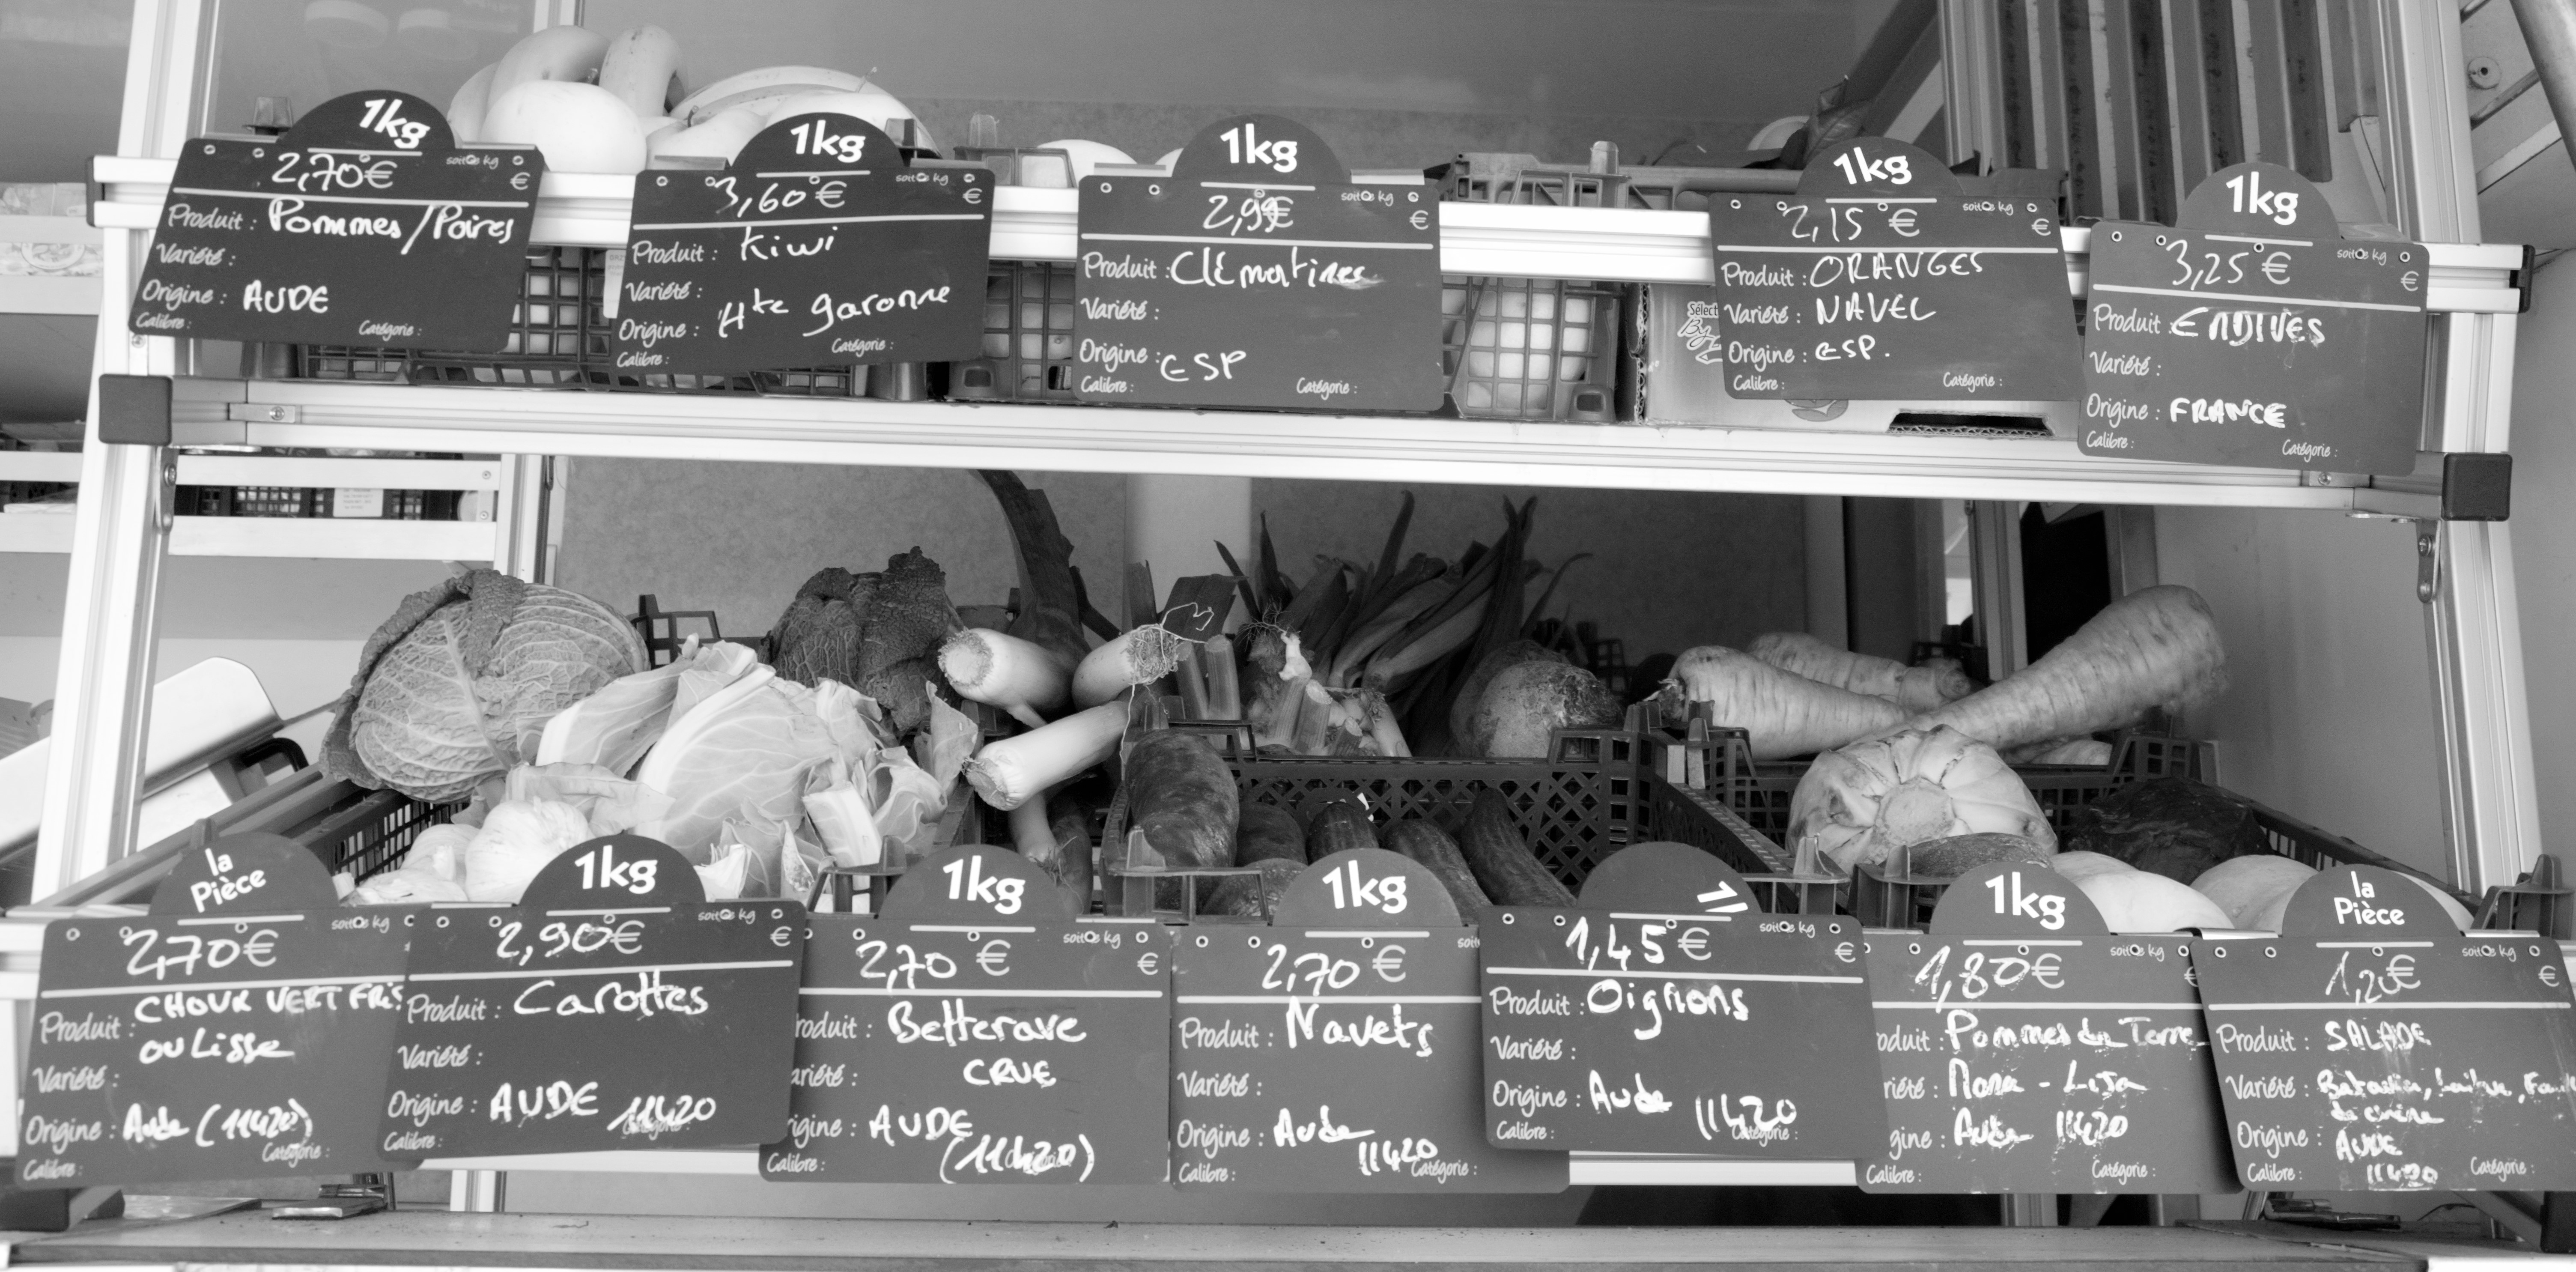 1kg
2,70 €
soit le kg
€
Produit : Pommes/Poires
Variété :
Origine : AUDE
Calibre : Catégorie :
1kg
3,60 €
soit le kg
€
Produit : Kiwi
Variété :
Origine : Hte garonne
Calibre : Catégorie :
1kg
2,99€
soit le kg
€
Produit : Clémentines
Variété :
Origine : ESP
Calibre : Catégorie :
1kg
2,15 €
soit le kg
€
Produit : ORANGES
Variété : NAVEL
Origine : ESP.
Calibre : Catégorie :
1kg
3,25 €
soit le kg
€
Produit : ENDIVES
Variété :
Origine : FRANCE
Calibre : Catégorie :
la
Pièce
2,70 €
soit le kg
CHOUX VERT FRIS
Produit :
ou Lisse
Variété :
Origine : Aude (11420)
Calibre : Catégorie :
1kg
2,90€
soit le kg
€
Produit : Carottes
Variété :
Origine : AUDE 11420
Calibre : Catégorie :
1kg
2,70 €
soit le kg
€
roduit : Betterave
ariété : CRUE
rigine : AUDE
(11420)
Calibre :
1kg
2,70 €
soit
Produit : Navets
Variété :
Origine : Aude
11420
Calibre : Catégorie :
1
1,45 €
soit le kg
€
Produit : Oignons
Variété :
Origine : Aude 11420
Calibre : Catégorie :
1kg
1,80€
soit le kg
€
oduit : Pommes de Terre
riété : Mona - Lisa
gine : Aude 11420
Calibre : Catégorie :
la
Pièce
1,20€
soit le kg
€
Produit : SALADE
Variété : Batavia, Laitue,
Origine : AUDE
11420
Calibre : Catégorie :